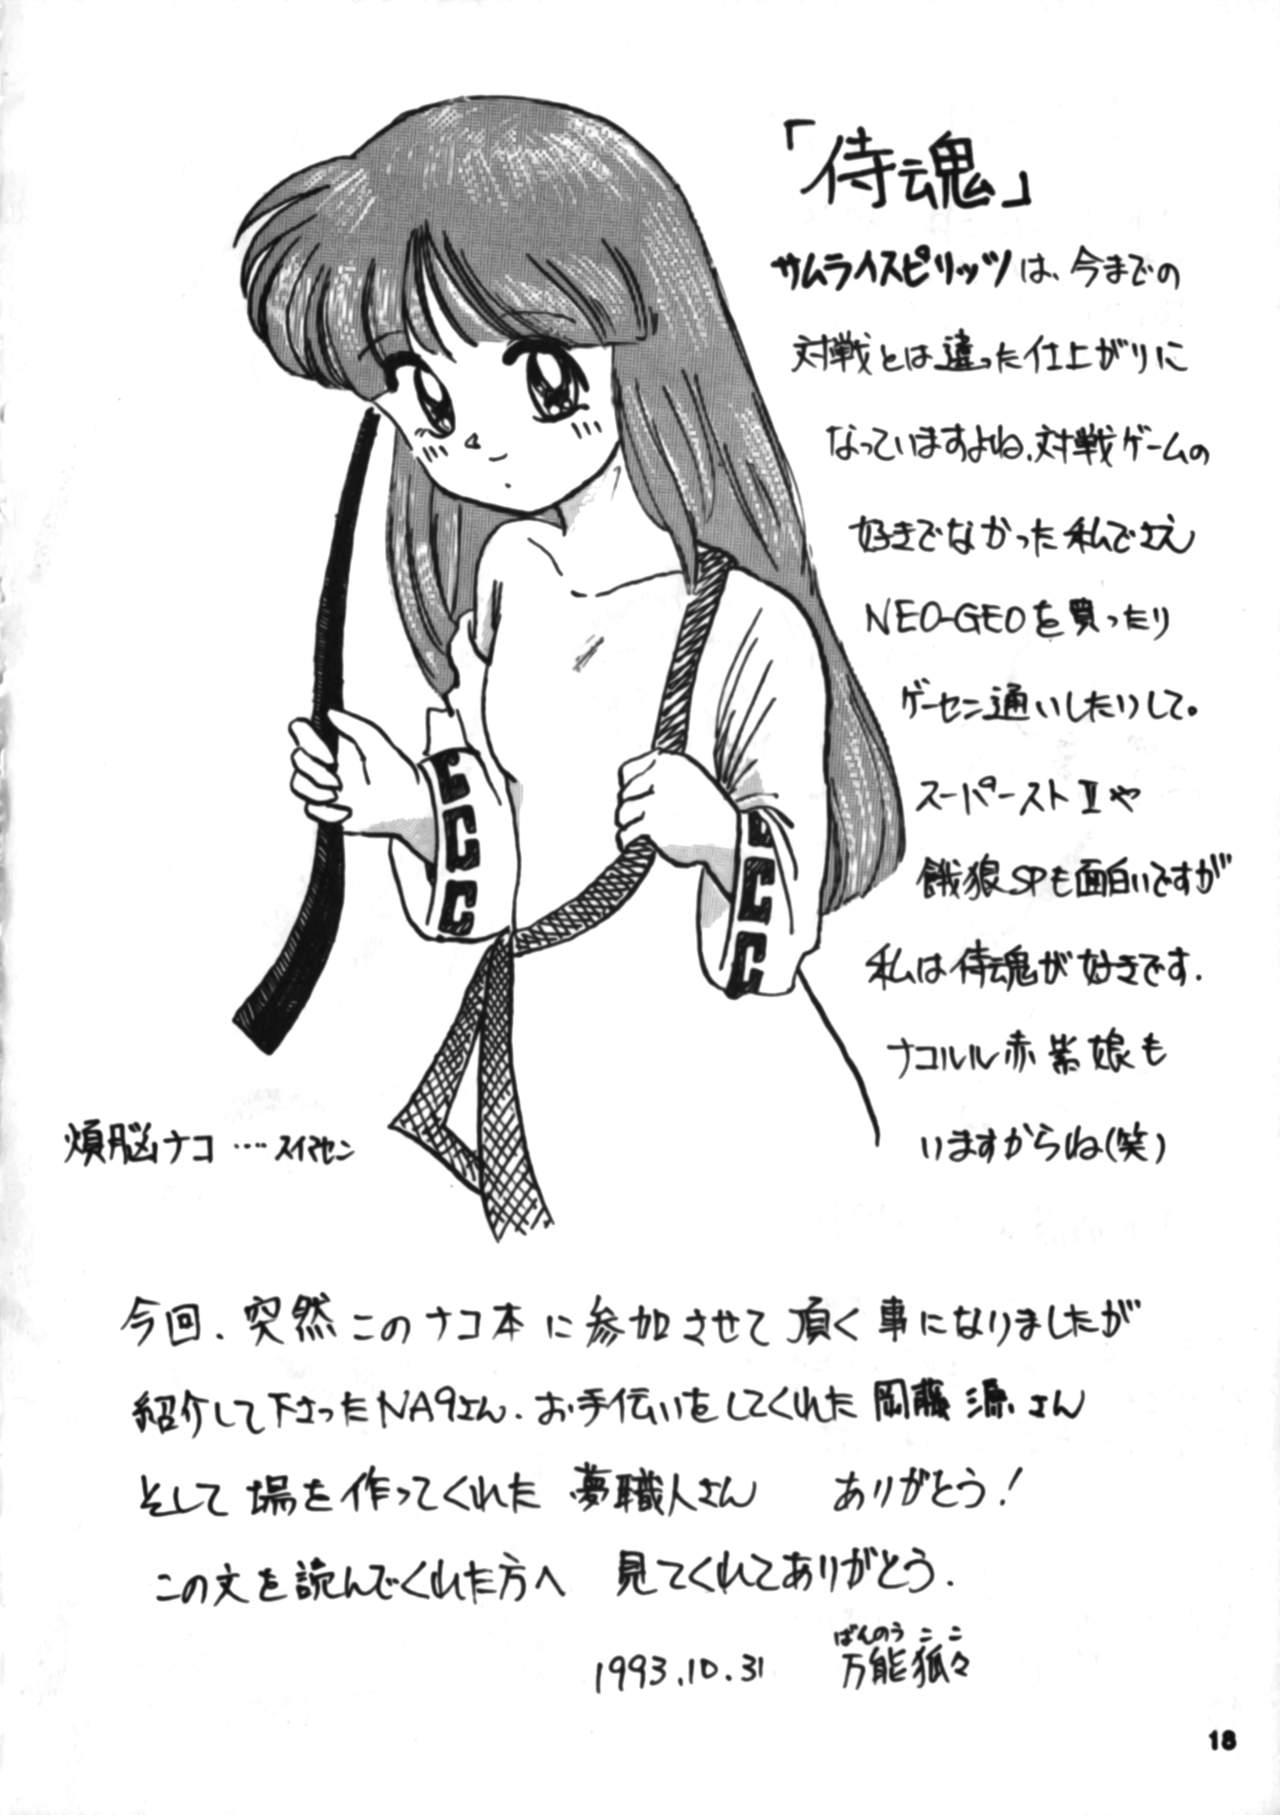 「侍魂」
サムライスピリッツは、今までの
対戦とは違った仕上がりに
なっていますよね、対戦ゲームの
好きでなかった私でさえ
NEO-GEOを買ったり
ゲーセン通いしたりして。
スーパーストⅡや
餓狼SPも面白いですが
私は侍魂が好きです.
ナコルル赤紫娘も
いますからね(笑)
煩悩ナコ ‥‥スイマセン
今回、突然このナコ本に参加させて頂く事になりましたが
紹介して下さったNA9さん、お手伝いをしてくれた岡藤源さん
そして場を作ってくれた夢職人さん ありがとう!
この文を読んでくれた方へ 見てくれてありがとう.
1993.10.31
ばんのうここ
万能狐々
18